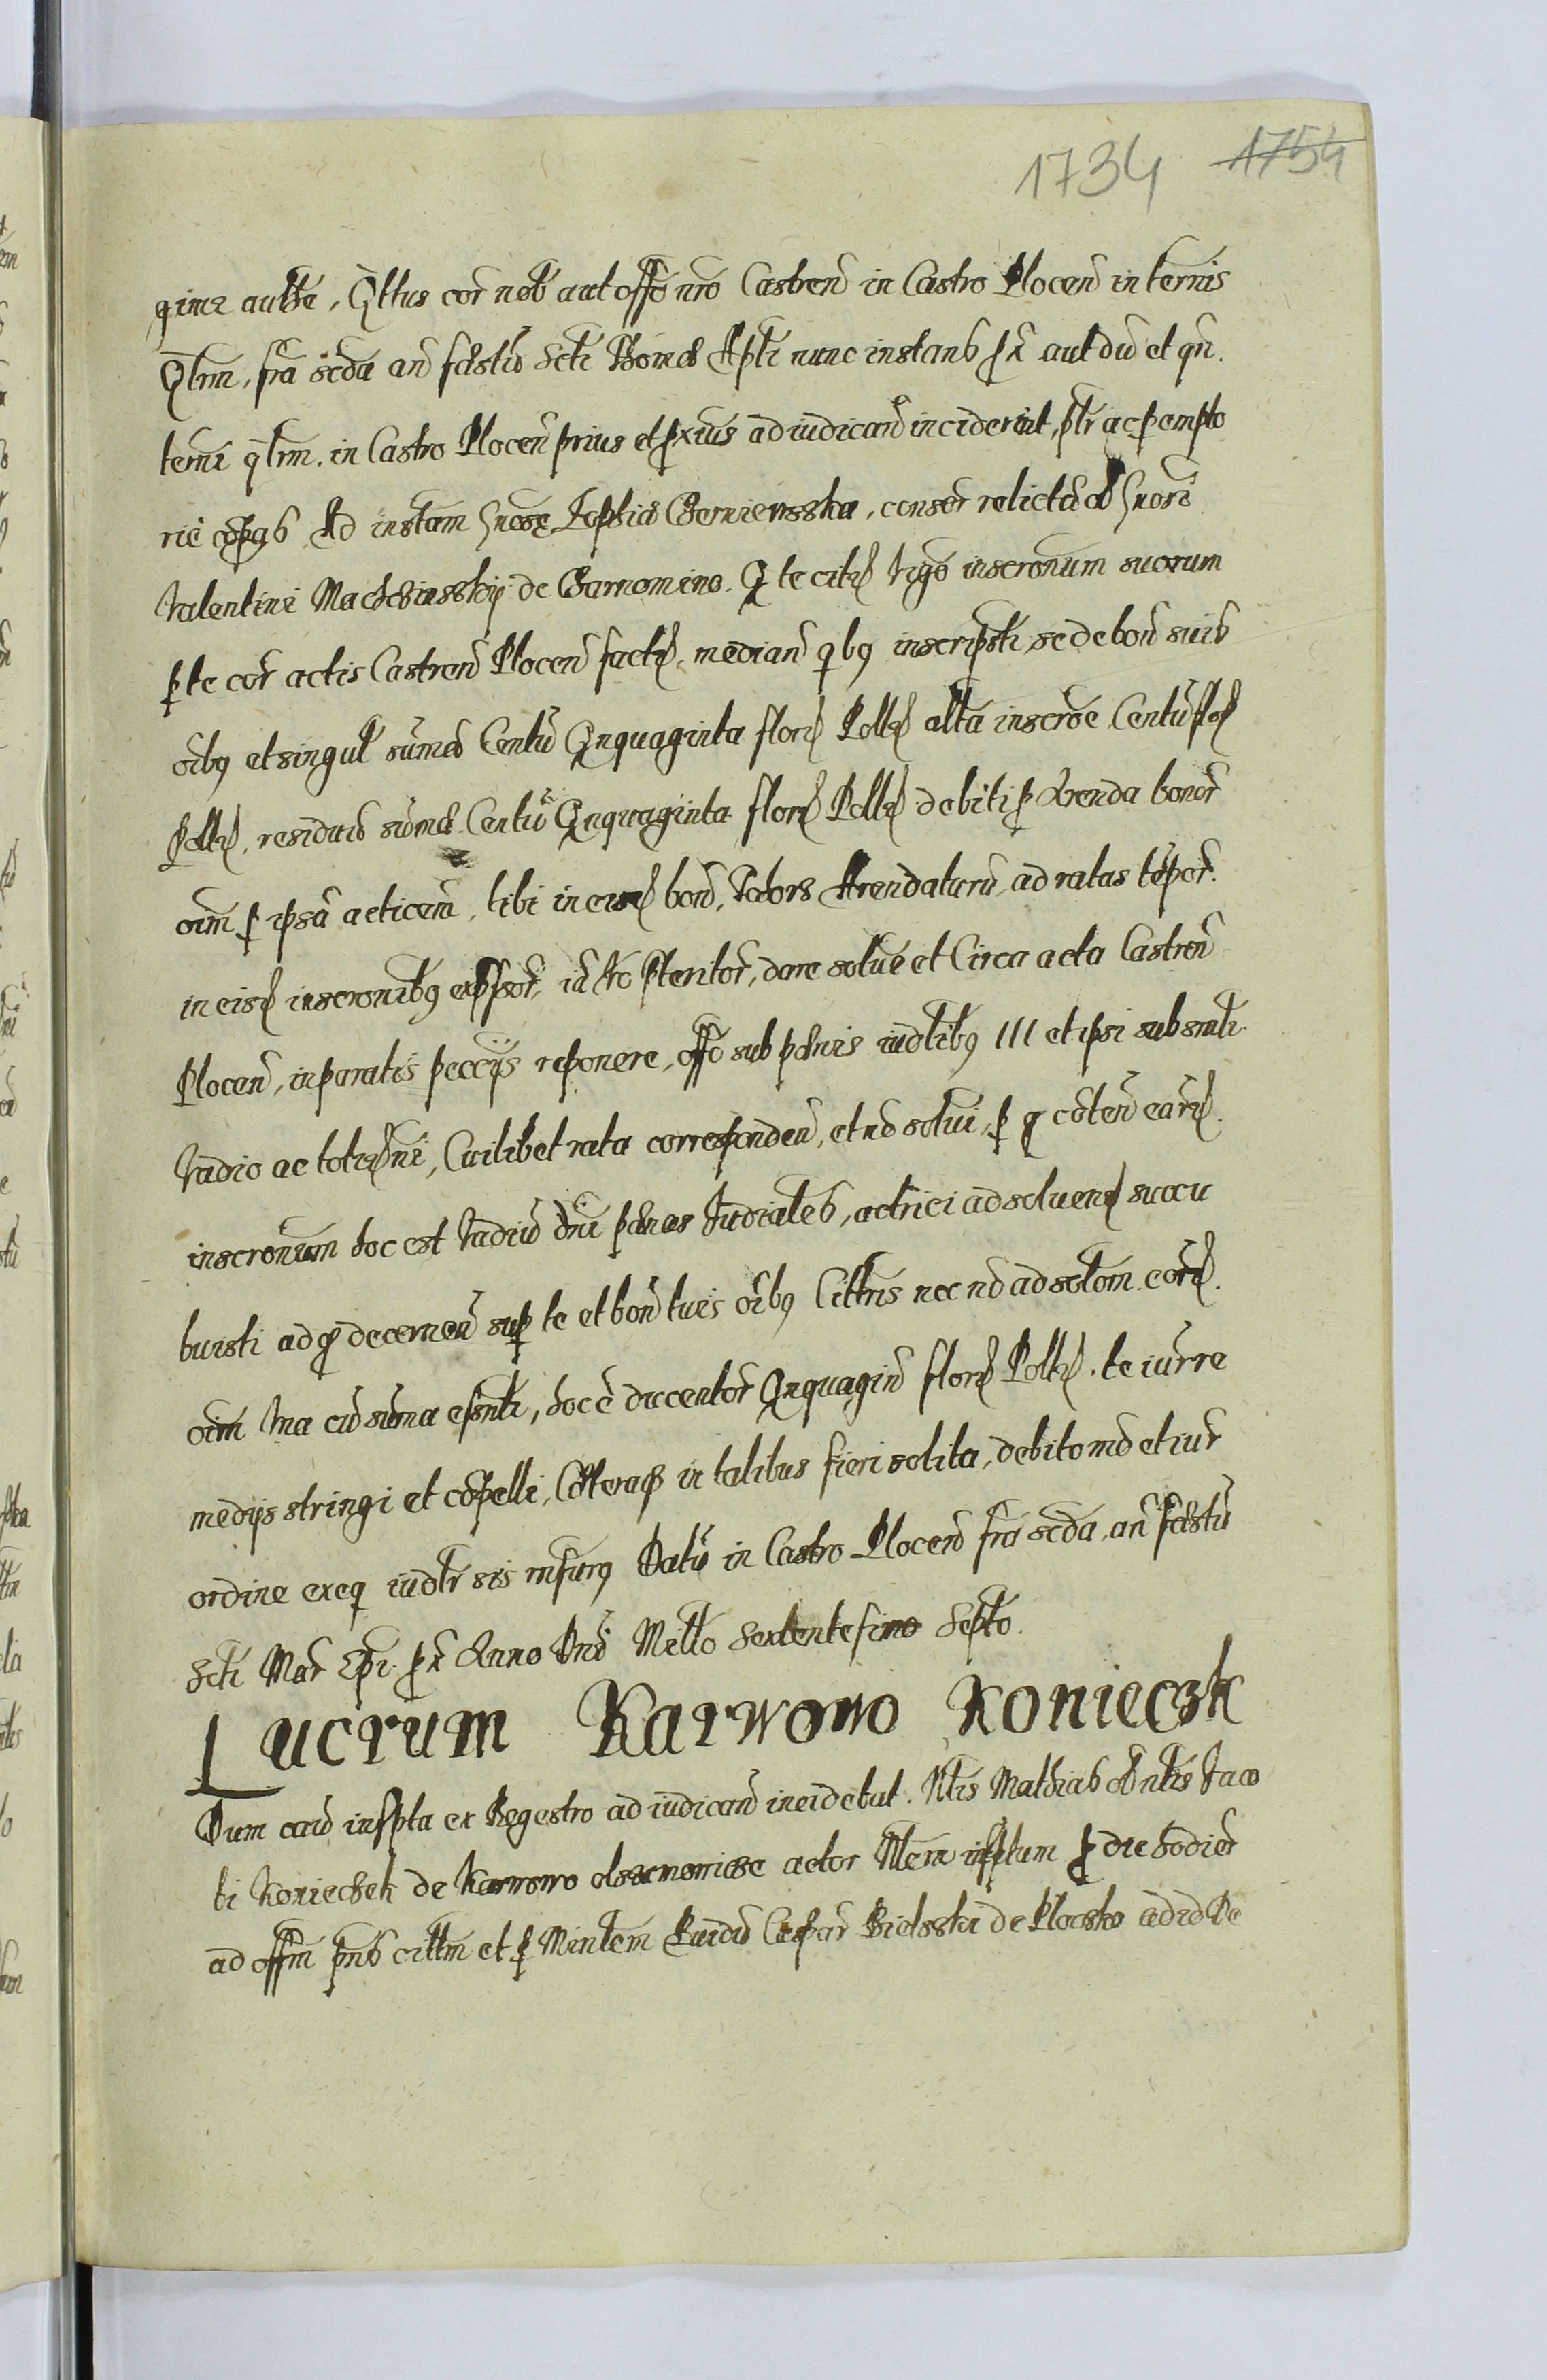 1734 1754
qimr autte, Qttus cor nob aut offo nro Castren in Castro Plocen in termis
Qlrm, fra scda an festu Scti Thomae Apti nunc instans px aut du et qn.
termi qlrm. in Castro Plocen prius et pxius ad iudicand inciderint, ptr ac pempto
rie Ad instam Gnosae Zophiae Czerniewsska, conser relictae ol Gnosi
Valentini Machczinsskij de Czarnomino. Q te citt Vigo inscronum suorum
p te cor actis Castren Plocen factt, median qbq inscripsti se de bon suis
oibq et singul sumae Centu Qnquaginta floren Pollt alta inscroe Centu flor
Pollt, residuis sumae Centu Qnquaginta floren Pollt debiti p Arenda bonor
oim p ipsa acticem, tibi in eisd bon, Arendaturu, ad ratas tepor.
in eisd inscronibq expssor, ia vro pteritor, dare solue et Circa acta Castren
Plocen, in paratis peccijs reponere, offo sub paenis iudlibq III et ipsi sub smli
Vadio ac, Cuilibet rata corresponden, et no solui, p q coten eard.
inscronum hoc est Vadiu dni paenas Iudiales, actrici ad soluend succu
buisti ad q decernen sup te et bon tuis oibq Cittris nec no ad solom eord.
oim Vna cu suma esnti, hoc e ducentor Qnquagin floren Pollt. te iurre
medijs stringi et copelli, Coteraq in talibus fieri solita, debito mo et iur
ordine exeq iudlr sis rnsurq Datu in Castro Plocen fra scda an festu
Scti Mar Epi. px Anno Dni Millo Sexcentesimo Septo.
Lucrum Karwowo Konieczk
Dum caus inspta ex Regestro ad iudicand incidebat. Nlis Mathias ol nlis Jaco
bi Konieczek de Karwowo actor Mlem insptum p die hodier
ad offm pns cittm et p Mintem Puidu Caspar Bielsski de Plocsko ad id De